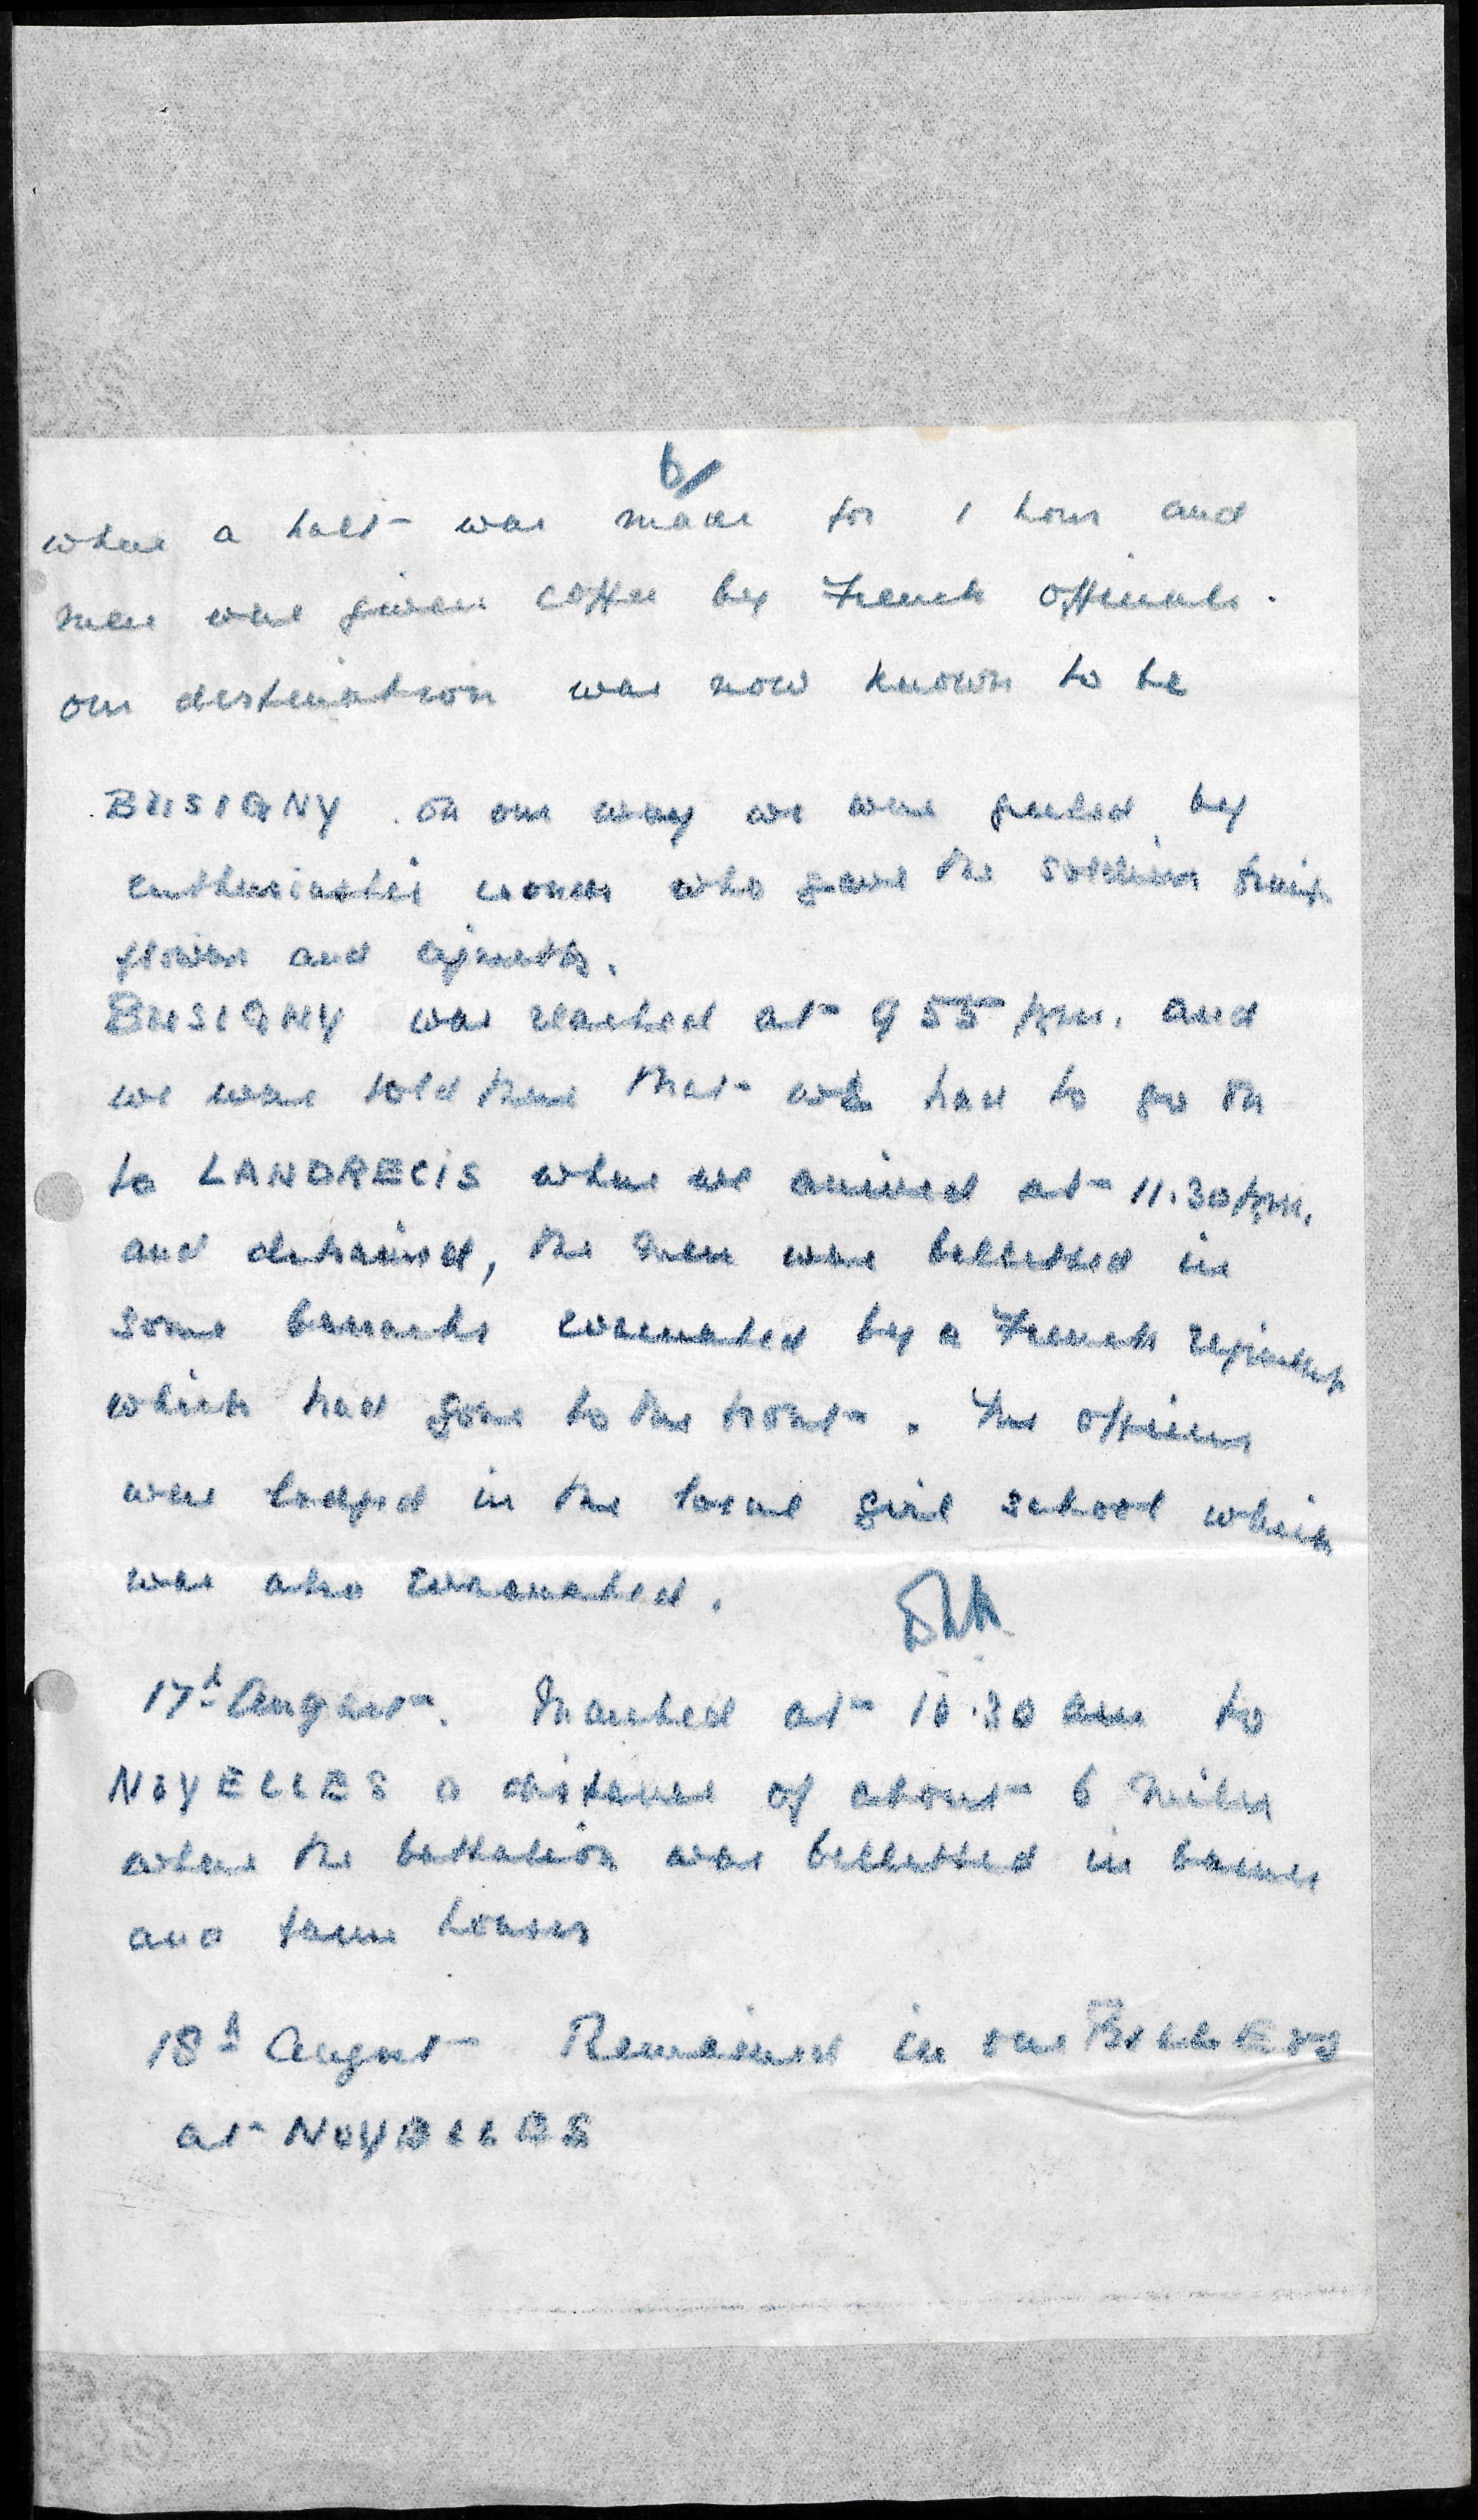 6/
where a halt was made for 1 hour and
men were given coffee by French officials.
our destination was now known to be
BUSIGNY. on our way we were greeted by
enthusiastic women who gave the soldiers fruit
flowers and cigarettes.
BUSIGNY was reached at 9 55 p.m. and
we were told there that we had to go on
to LANDRECIS where we arrived at 11.30 p.m.
and detrained, the men were billetted in
some barracks evacuated by a French regiment
which had gone to the front. The officers
were lodged in the local girl school which
was also evacuated.
17th August. Marched at 10.30 am to
NOYELLES a distance of about 6 miles
where the battalion was billetted in barns
and farm houses
18th August Remained in our BILLETS
at NOYELLES